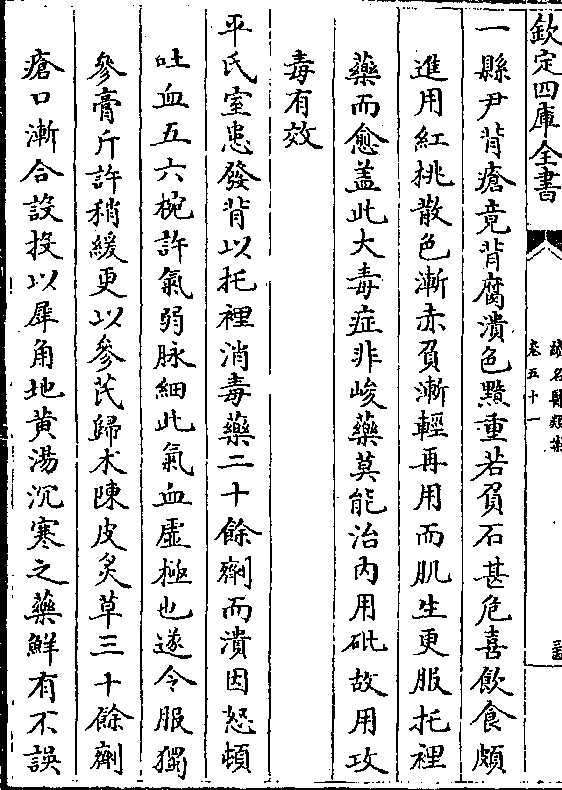 欽定四庫全書
續名醫類案
卷五十一
一縣尹背瘡竟背腐潰色黯重若負石甚危喜飲食頗
進用紅桃散色漸赤負漸輕再用而肌生更服托裡
藥而愈盖此大毒症非峻藥莫能治内用砒故用攻
毒有效
平氏室患發背以托裡消毒藥二十餘劑而潰因怒頓
吐血五六椀許氣弱脉細此氣血虛極也遂令服獨
參膏斤許稍緩更以參芪歸术陳皮炙草三十餘劑
瘡口漸合設投以犀角地黄湯沉寒之藥鮮有不誤